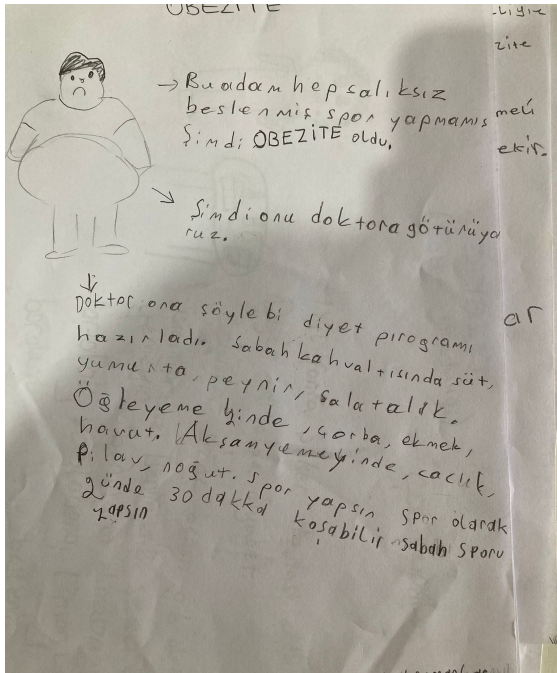 OBEZİTE
→ Bu adam hep salıksız
beslenmiş spor yapmamış
Şimdi OBEZİTE oldu.
Şimdi onu doktora götürüyo
ruz.
Doktor ona şöyle bi diyet pırogramı
hazırladı. Sabah kahvaltısında süt,
yumurta, peynir, salatalık.
Öğleyeme ğinde, çorba, ekmek,
havut. Akşamyemeyinde, cacık,
Pilav, noğut. Spor yapsın spor olarak
günde 30 dakka koşabilir sabah sporu
yapsın
zite
meli
ekir.
ar